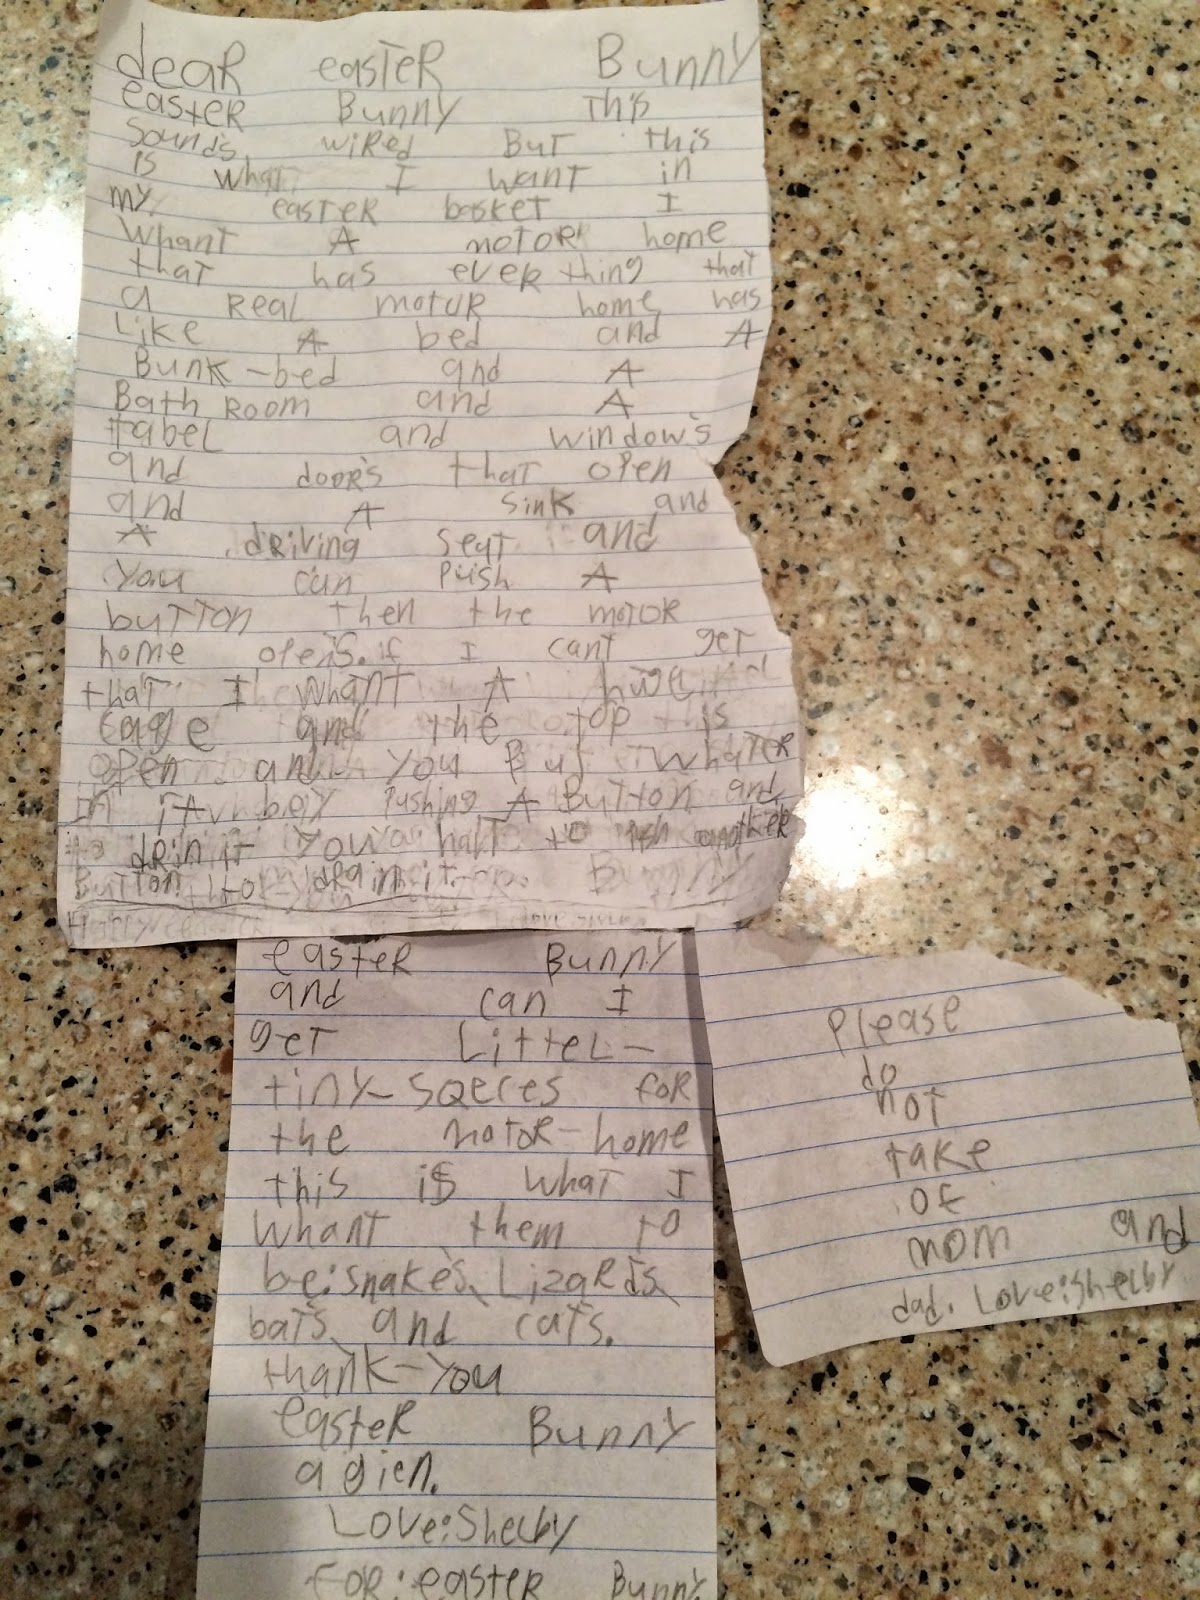 deaR easteR Bunny
easteR Bunny this
sounds wiRed But this
is what I want in
my easteR basket I
whant A motoR home
that has everthing that
a Real motoR home has
Like A bed and A
Bunk-bed and A
Bath Room and A
tabel and window's
and dooR's that open
and A sink and
A dRiving seat and
you can push A
button then the motoR
home opens. if I cant get
that I whant A
eagle and the top is
open and you Put whateR
in it by pushing A Button and
dRin it you haft to push anotheR
Button to dRain it.
easteR Bunny
and can I
get LitteL-
tiny-sqeces foR
the motoR-home
this is what I
whant them to
be: snakes, LizaRds,
bats, and cats.
thank-you
easteR Bunny
agien.
Love: Shelby
FoR: easteR Bunny
Please
do
not
take
of
mom and
dad. Love: Shelby